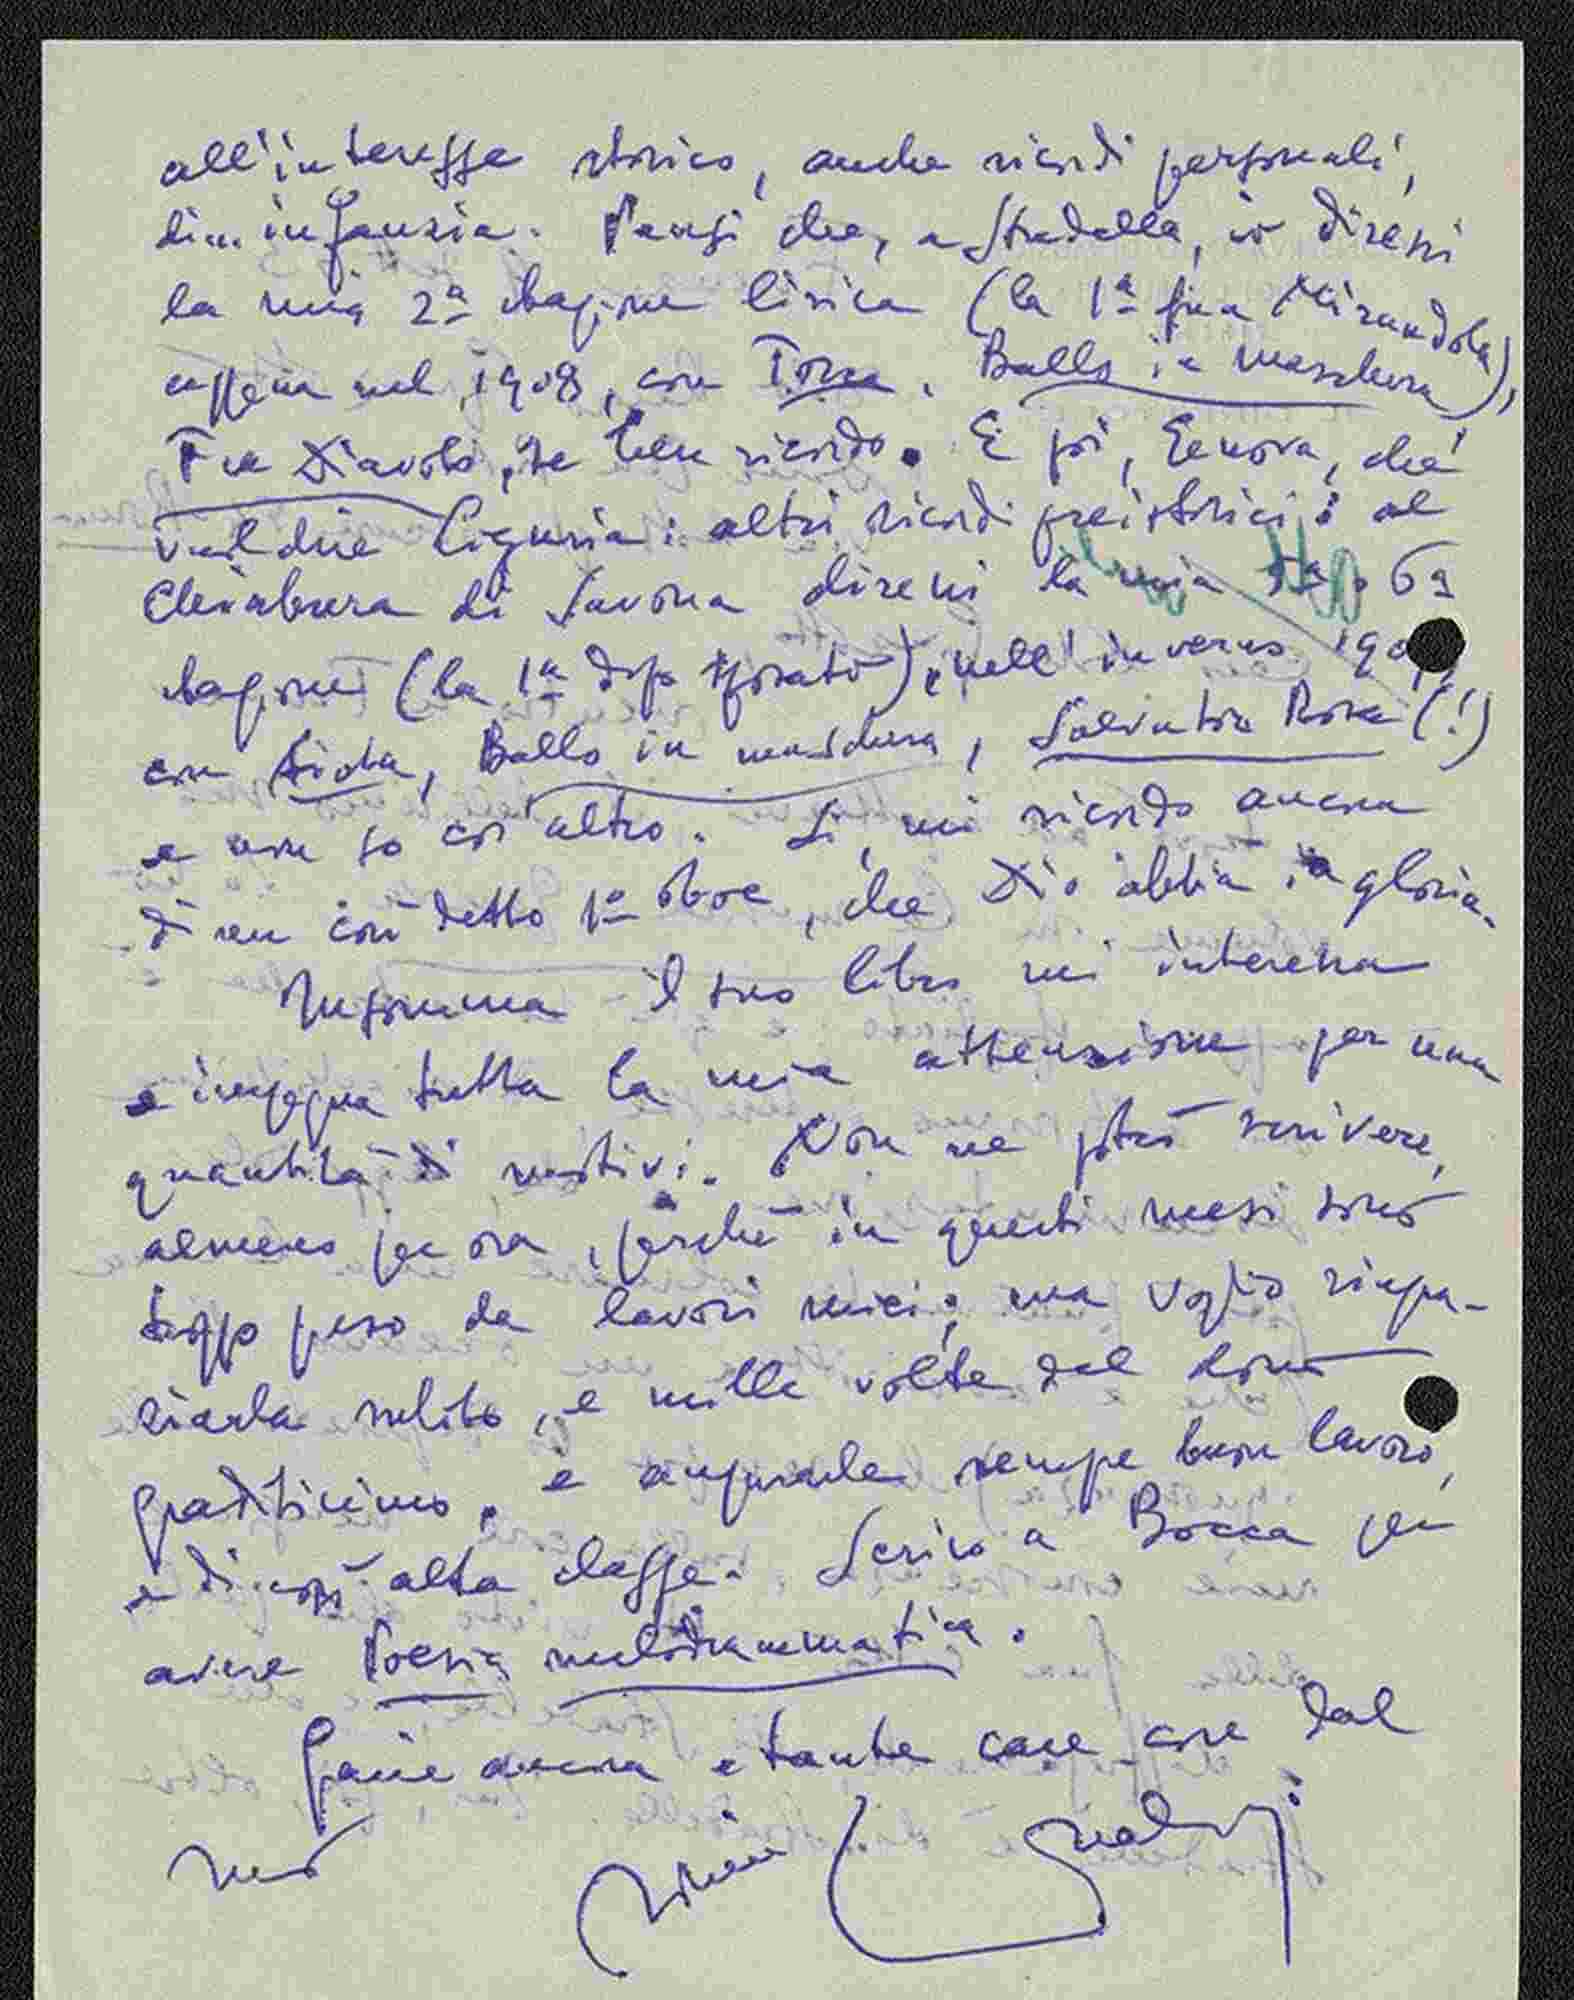 all'interesse storico, anche ricordi personali,
di... infanzia. Pensi che, a Stradella, io diressi
la mia 2ª stagione lirica (la 1ª fu a Mirandola),
appena nel 1908, con Tosca, Ballo in maschera,
Fra Diavolo, se ben ricordo. E poi, Genova, che
vuol dire Liguria: altri ricordi preistorici: al
Chiabrera di Savona diressi la mia 6ª
stagione (la 1ª dopo sposato), nell'inverno 190
con Aida, Ballo in maschera, Salvator Rosa (!)
e non so cos'altro. Sì, mi ricordo ancora
di un così detto 1º oboe, che Dio abbia in gloria.
Insomma il suo libro mi interessa
e impegna tutta la mia attenzione per una
quantità di motivi. Non ne potrò scrivere,
almeno per ora, perché in questi mesi sono
troppo preso da lavori miei; ma voglio ringra-
ziarla subito, e mille volte del dono
graditissimo, e augurarle sempre buon lavoro,
e di così alta classe. Scrivo a Bocca per
avere Poesia melodrammatica.
Grazie ancora e tante care cose dal
suo